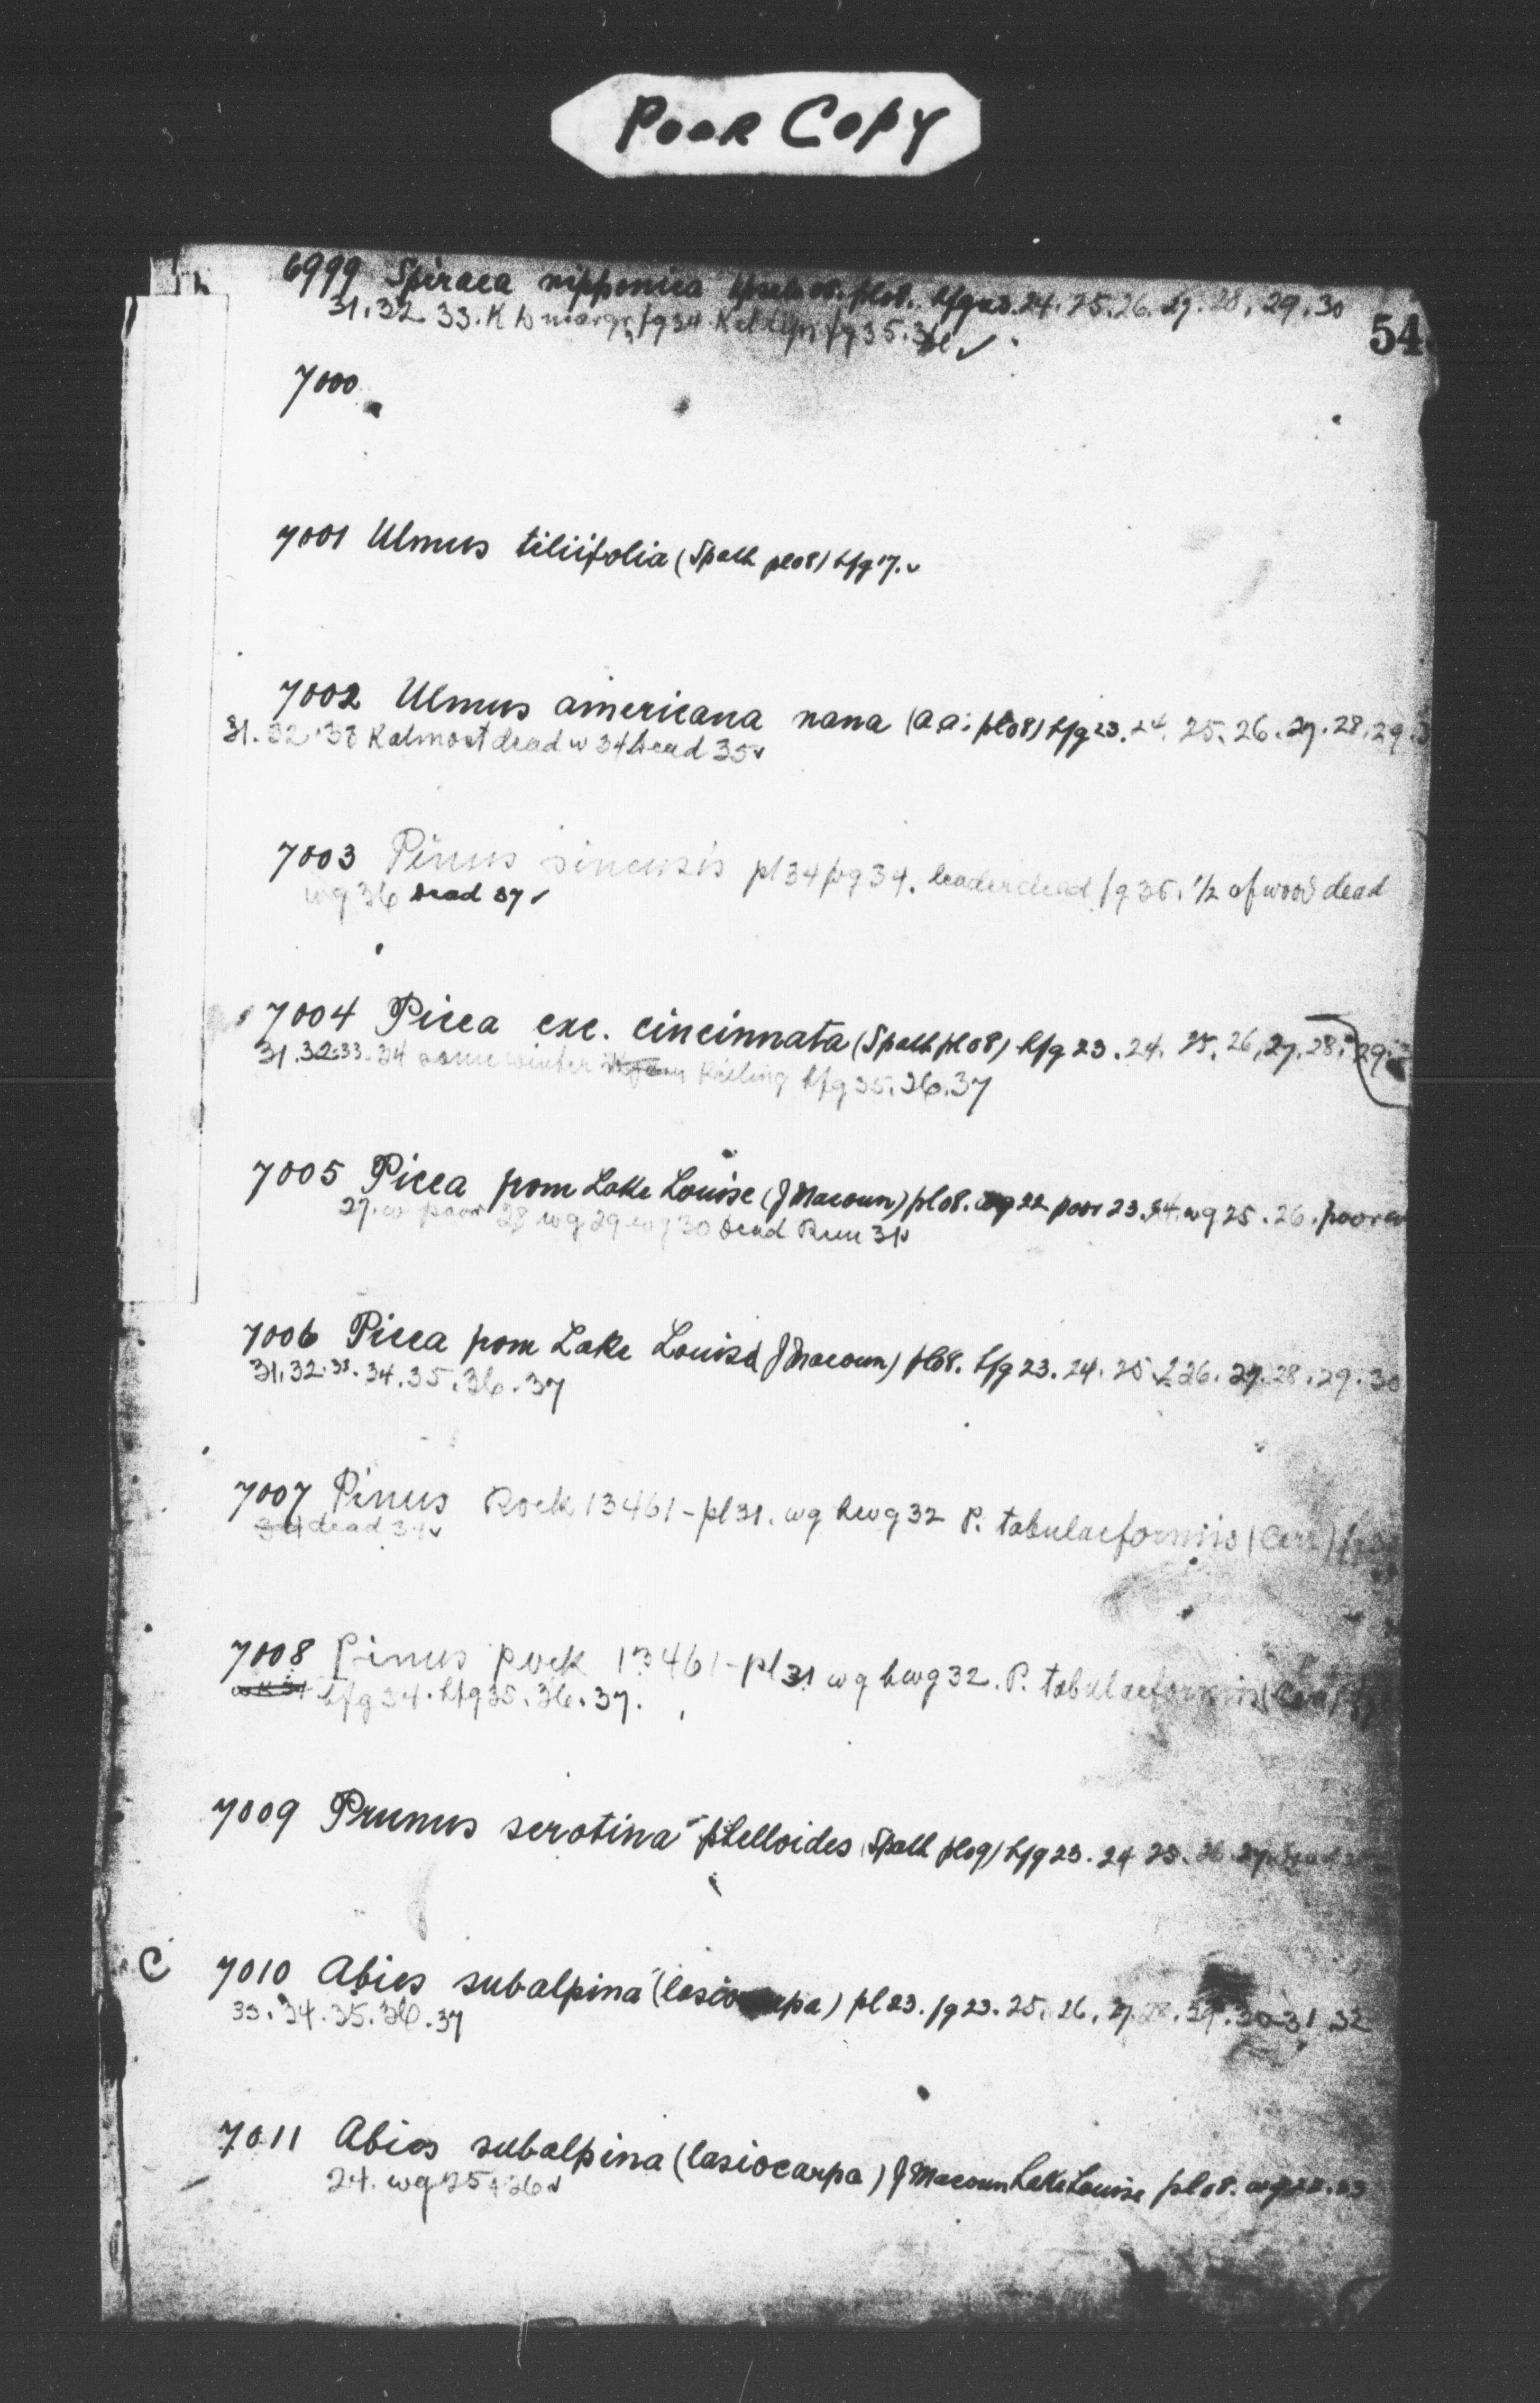 POOR COPY
6999 Spiraea nipponica pl08. hfg23. 24. 25. 26. 27. 28. 29. 30
31. 32 33. K to fg34 fg35. 36 ✓
54
7000
7001 Ulmus tiliifolia (Spath pl08) hfg17. ✓
7002 Ulmus americana nana (a.a. pl08) hfg23. 24. 25. 26. 27. 28. 29
31. 32. 33 K almost dead w 34 dead 35 ✓
7003 Pinus sinensis pl34 fg34. leader dead fg35. 1/2 of wood dead
wg36 Dead 37 ✓
7004 Picea exc. cincinnata (Spath pl08) hfg23. 24. 25. 26, 27. 28. 29.
31. 32. 33. 34 some winter Killing hfg35. 36. 37
7005 Picea from Lake Louise (J Macoun) pl08. wg22 poor 23. 24. wg25. 26. poor
27. w poor 28 wg29 wg30 Dead 31 ✓
7006 Picea from Lake Louise (J Macoun) pl08. hfg23. 24. 25 26. 27. 28. 29. 30
31. 32. 33. 34. 35. 36. 37
7007 Pinus Rock 13461 - pl31. wg hwg32 P. tabulaeformis
dead 34 ✓
7008 Pinus Rock 13461 - pl31 wg hwg32. P. tabulaeformis
hfg34. hfg35. 36. 37.
7009 Prunus serotina phelloides Spath pl09) hfg23. 24 25. 26 27
C 7010 Abies subalpina (lasiocarpa) pl23. fg23. 25. 26. 27. 28. 29. 30 31 32
33. 34. 35. 36. 37
7011 Abies subalpina (lasiocarpa) J Macoun Lake Louise pl08. wg22. 23
24. wg25 + 26 ✓